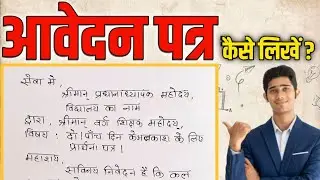 आवेदन पत्र
कैसे लिखें ?
सेवा में,
श्रीमान् प्रधानाध्यापक महोदय,
विद्यालय का नाम
द्वारा, श्रीमान वर्ग शिक्षक महोदय,
विषय: दो/पाँच दिन के अवकाश के लिए
प्रार्थना पत्र।
महाशय,
सविनय निवेदन है कि कल